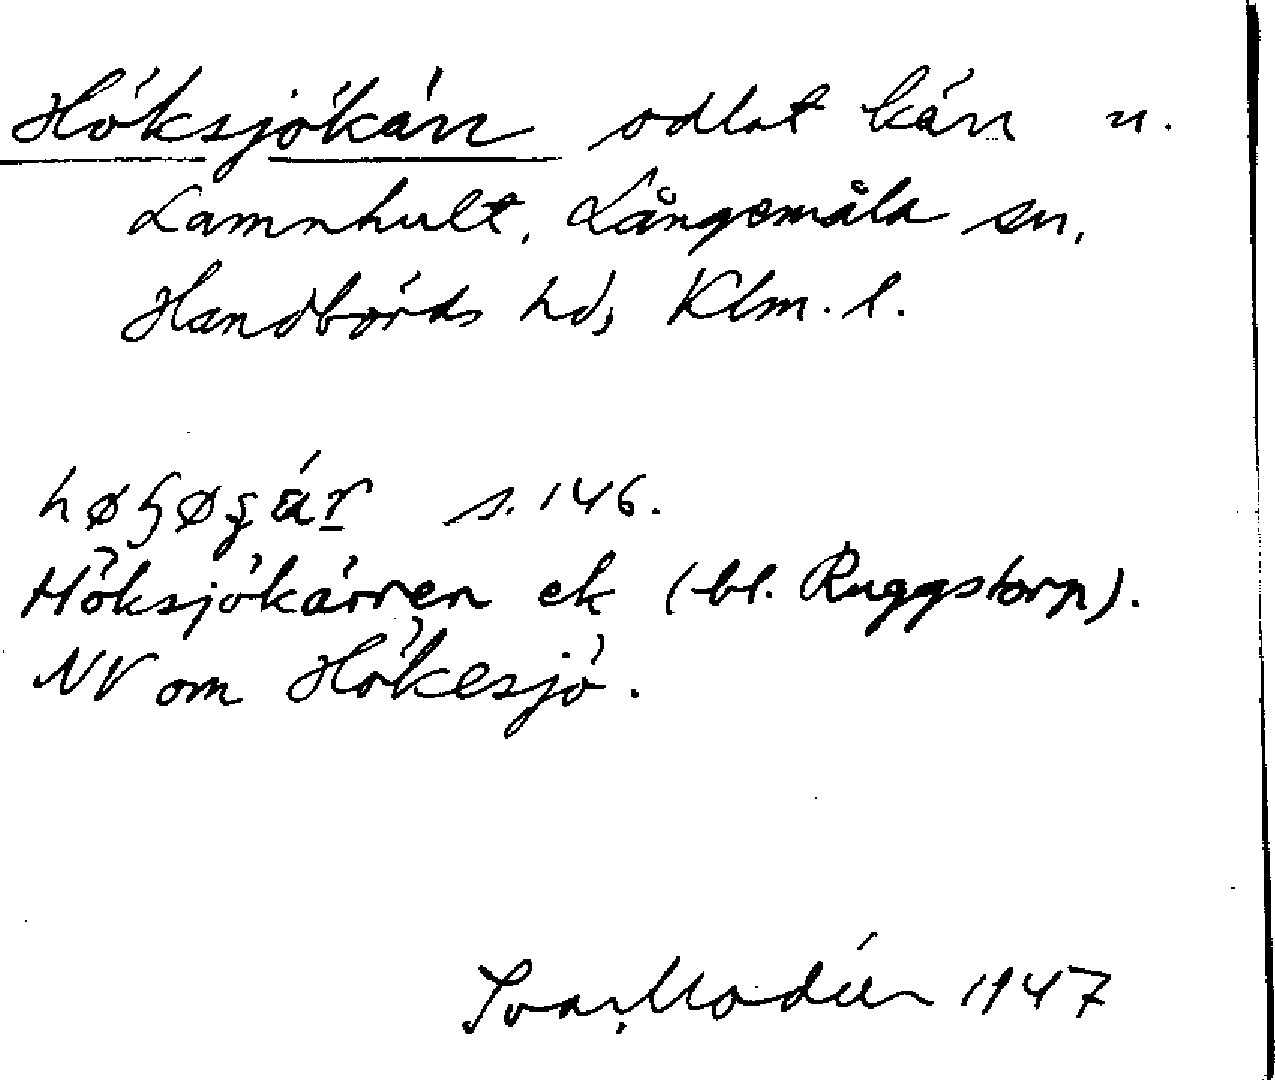 Höksjökärr odlat kärr u.
Lamnhult, Långemåla sn,
Handbörds hd, Klm. l.
s. 146.
Höksjökärren ek (bl. Ruggstorp).
NV om Hökesjö.
Ivar Modéer 1947